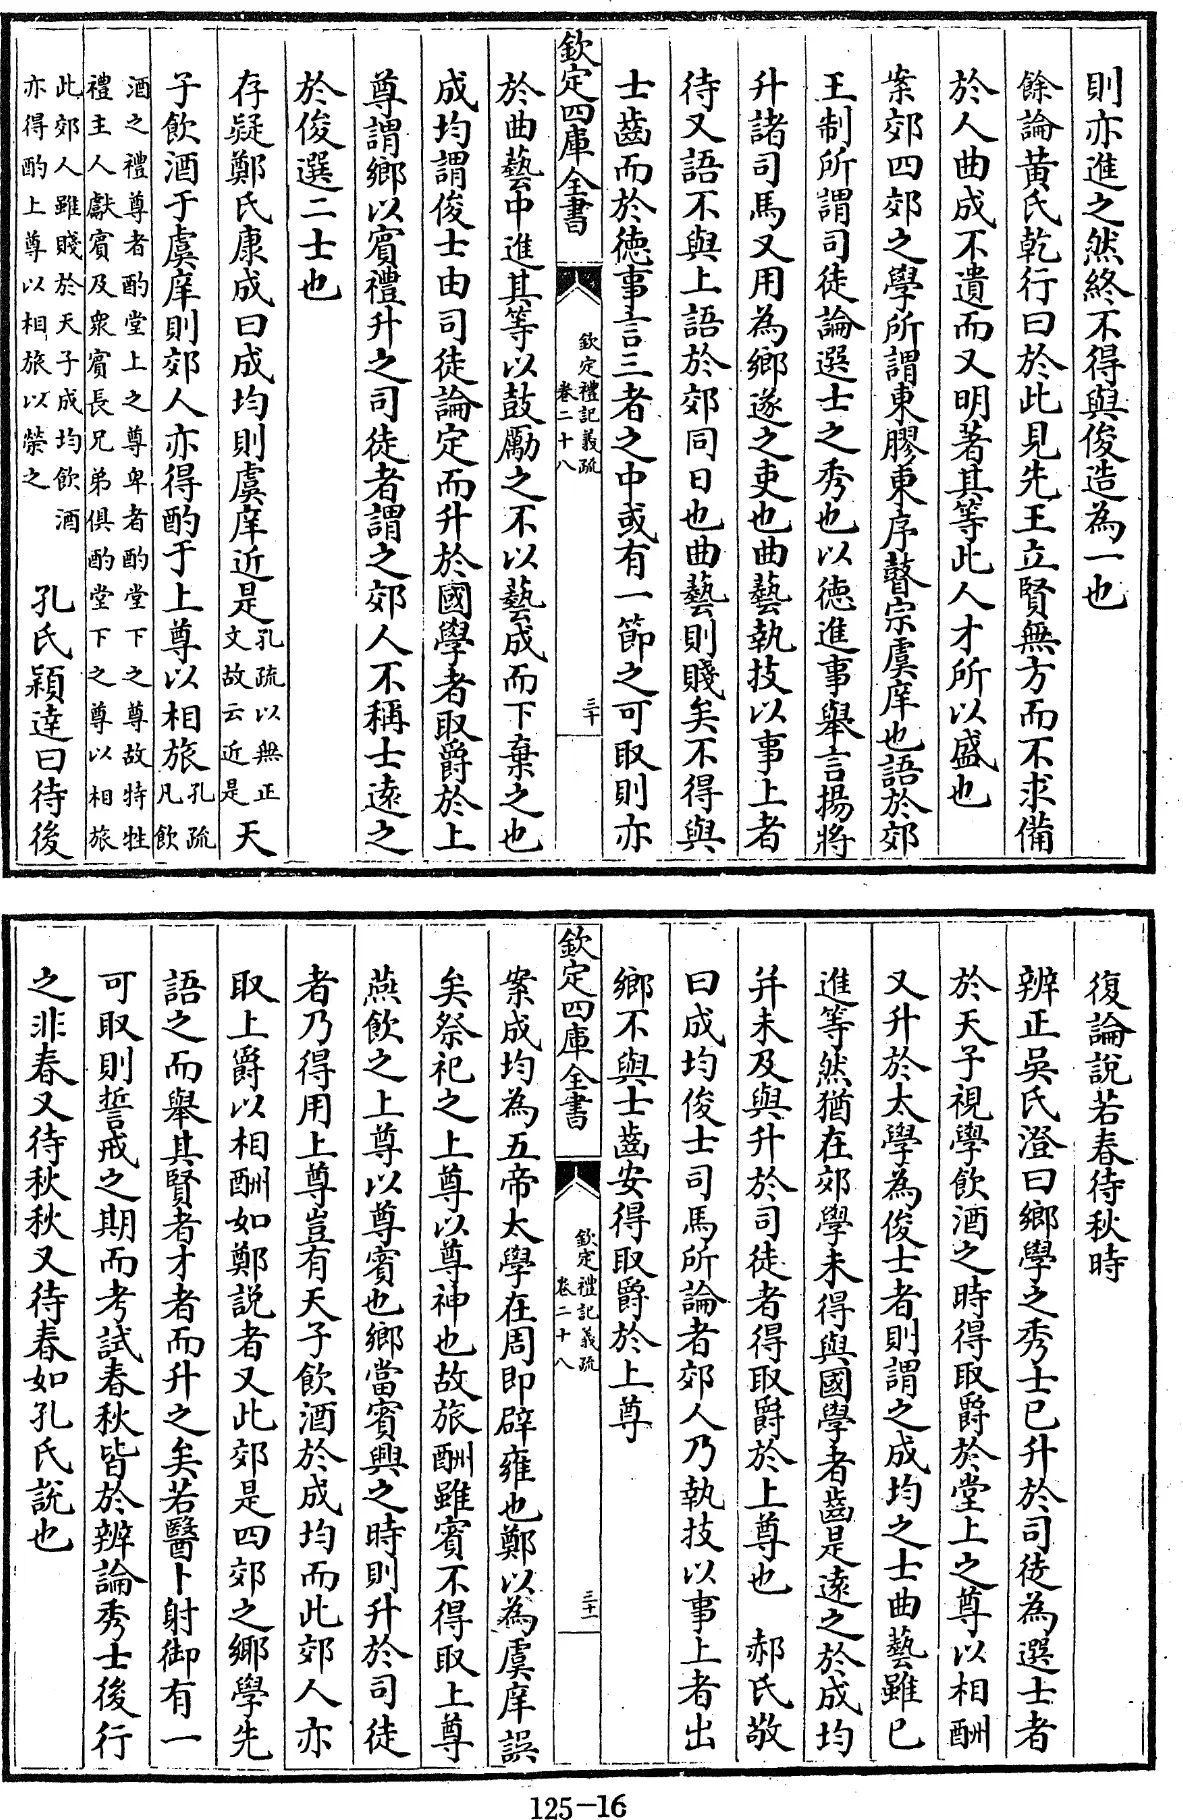 則亦進之然終不得與俊造為一也
餘論黃氏乾行曰於此見先王立賢無方而不求備
於人曲成不遺而又明著其等此人才所以盛也
案郊四郊之學所謂東膠東序瞽宗虞庠也語於郊
王制所謂司徒論選士之秀也以徳進事舉言揚將
升諸司馬又用為鄉遂之吏也曲藝執技以事上者
待又語不與上語於郊同日也曲藝則賤矣不得與
士齒而於徳事言三者之中或有一節之可取則亦
欽定四庫全書
欽定禮記義疏
卷二十八
三十
於曲藝中進其等以鼓勵之不以藝成而下棄之也
成均謂俊士由司徒論定而升於國學者取爵於上
尊謂鄉以賓禮升之司徒者謂之郊人不稱士遠之
於俊選二士也
存疑鄭氏康成曰成均則虞庠近是孔疏以無正文故云近是天
子飲酒于虞庠則郊人亦得酌于上尊以相旅孔疏凡飲
酒之禮尊者酌堂上之尊卑者酌堂下之尊故特牲
禮主人獻賓及衆賓長兄弟俱酌堂下之尊以相旅
此郊人雖賤於天子成均飲酒
亦得酌上尊以相旅以榮之
孔氏穎達曰待後
復論說若春待秋時
辨正吳氏澄曰鄉學之秀士已升於司徒為選士者
於天子視學飲酒之時得取爵於堂上之尊以相酬
又升於太學為俊士者則謂之成均之士曲藝雖已
進等然猶在郊學未得與國學者齒是遠之於成均
并未及與升於司徒者得取爵於上尊也　郝氏敬
曰成均俊士司馬所論者郊人乃執技以事上者出
鄉不與士齒安得取爵於上尊
欽定四庫全書
欽定禮記義疏
卷二十八
三十一
案成均為五帝太學在周即辟雍也鄭以為虞庠誤
矣祭祀之上尊以尊神也故旅酬雖賓不得取上尊
燕飲之上尊以尊賓也鄉當賓興之時則升於司徒
者乃得用上尊豈有天子飲酒於成均而此郊人亦
取上爵以相酬如鄭說者又此郊是四郊之鄉學先
語之而舉其賢者才者而升之矣若醫卜射御有一
可取則誓戒之期而考試春秋皆於辨論秀士後行
之非春又待秋秋又待春如孔氏說也
125-16